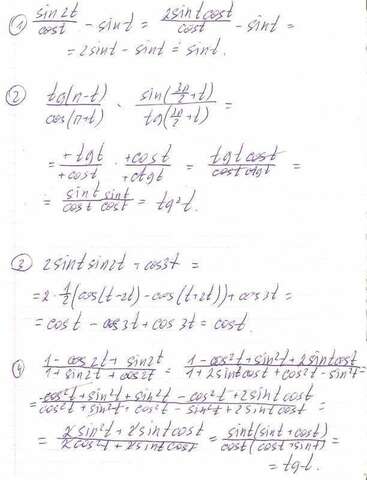 ① sin2t/cost - sint = 2sintcost/cost - sint =
= 2sint - sint = sint.
② tg(π-t)/cos(π+t) · sin(3π/2+t)/tg(3π/2+t) =
= -tgt/-cost · -cost/-ctgt = tgtcost/costctgt =
= sint sint/cost cost = tg²t.
③ 2sintsin2t + cos3t =
= 2·1/2(cos(t-2t) - cos(t+2t)) + cos3t =
= cost - cos3t + cos3t = cost.
④ 1-cos2t+sin2t/1+sin2t+cos2t = 1-cos²t+sin²t+2sintcost/1+2sintcost+cos²t-sin²t =
= cos²t+sin²t+sin²t-cos²t+2sintcost/cos²t+sin²t+cos²t-sin²t+2sintcost =
= 2sin²t+2sintcost/2cos²t+2sintcost = sint(sint+cost)/cost(cost+sint) =
= tgt.